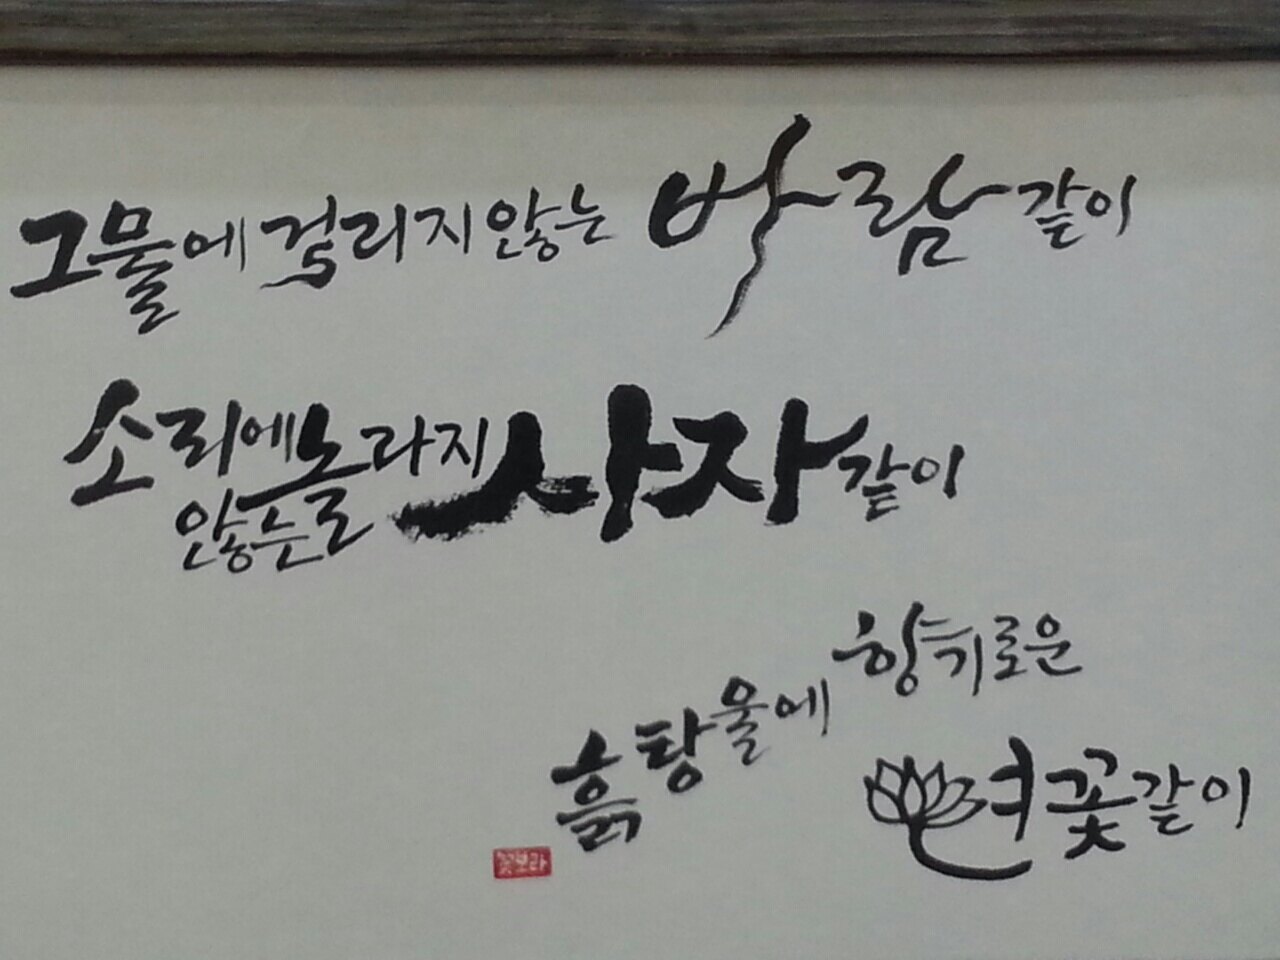 그물에 걸리지 않는 바람 같이
소리에 놀라지
않는 사자 같이
흙탕물에 향기로운
연꽃 같이
꽃보라